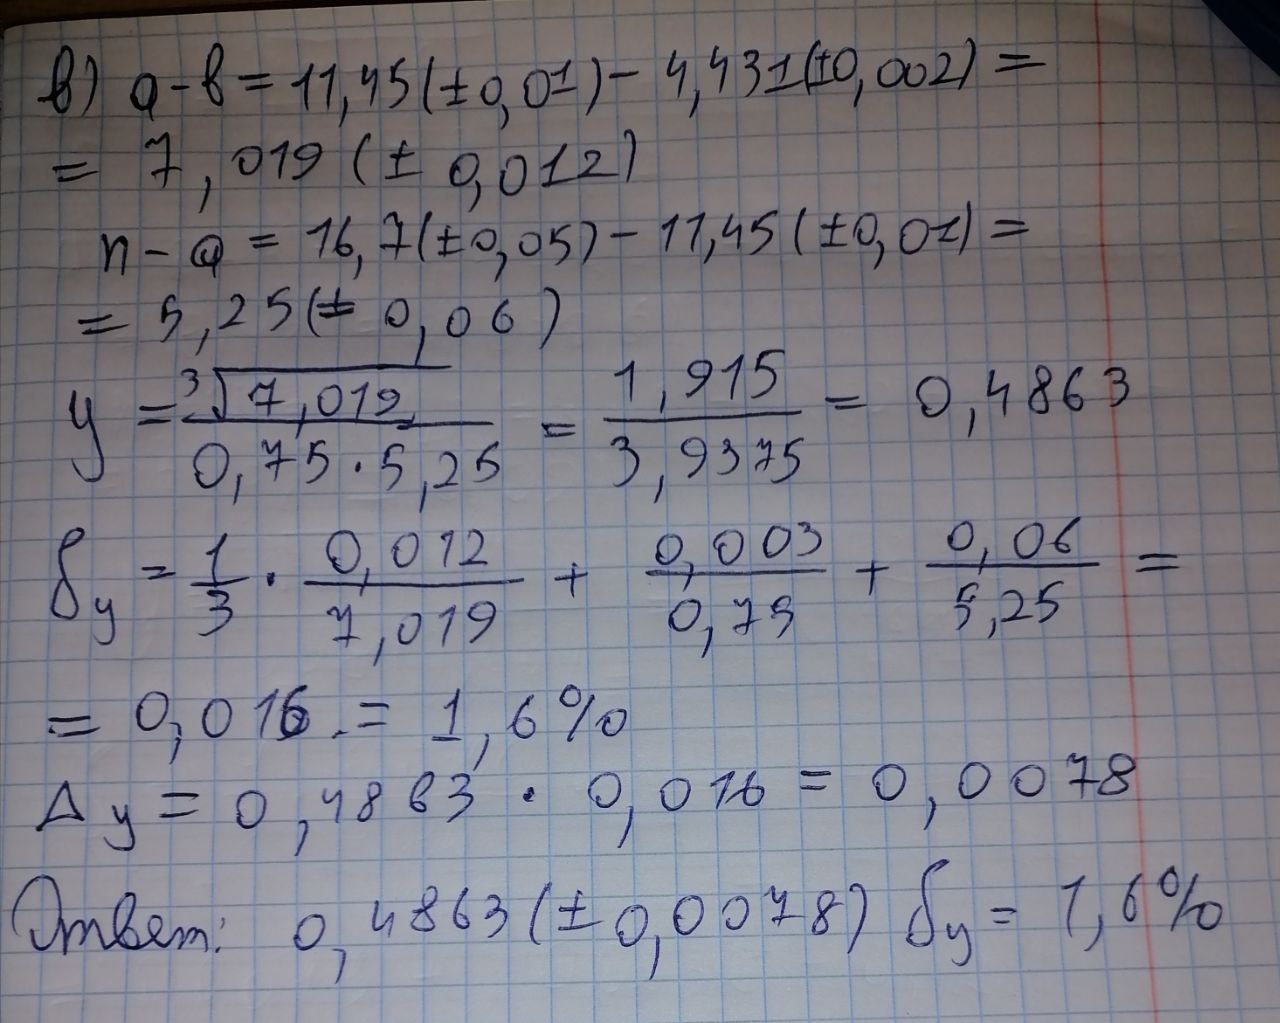 в) a-b = 11,45(±0,01) - 4,431(±0,002) =
= 7,019 (± 0,012)
n - a = 16,7(±0,05) - 11,45(±0,01) =
= 5,25(± 0,06)
y = ∛7,019 / 0,75·5,25 = 1,915 / 3,9375 = 0,4863
δy = 1/3 · 0,012/7,019 + 0,003/0,75 + 0,06/5,25 =
= 0,016 = 1,6%
Δy = 0,4863 · 0,016 = 0,0078
Ответ: 0,4863(±0,0078) δy = 1,6%